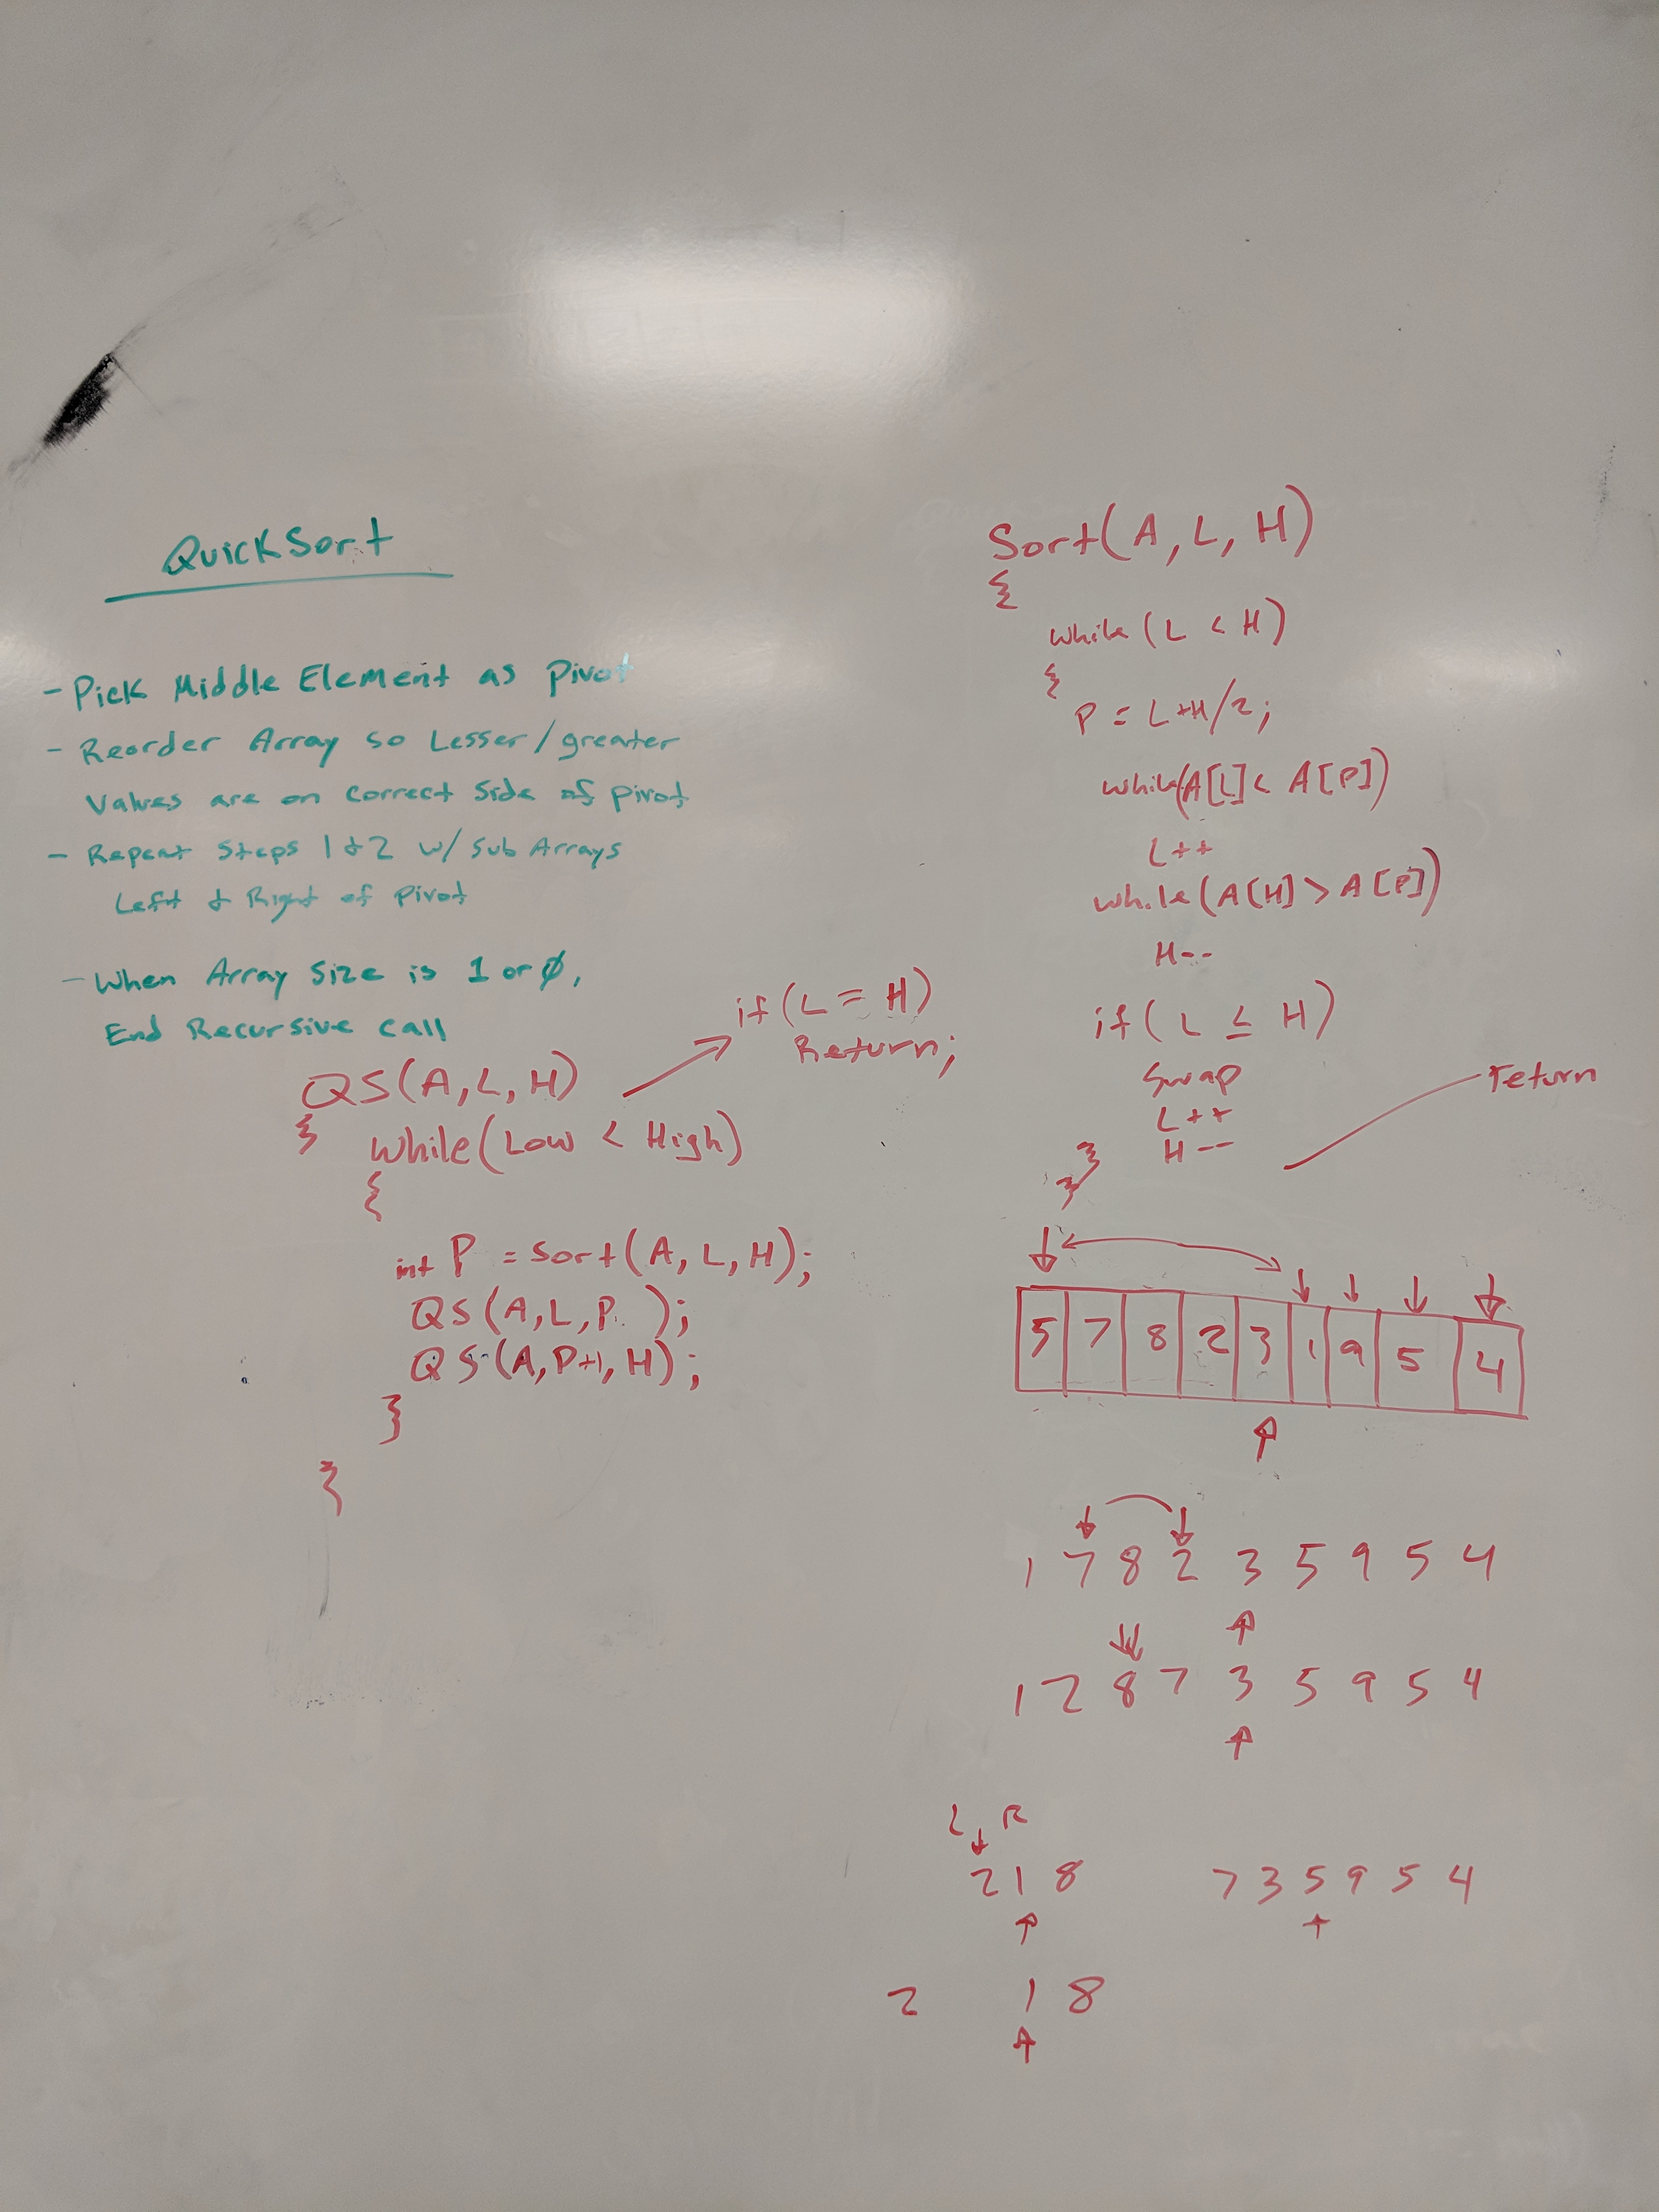 QuickSort
- Pick Middle Element as Pivot
- Reorder Array so Lesser/greater
Values are on correct Side of pivot
- Repeat Steps 1 & 2 w/ Sub Arrays
Left & Right of Pivot
- When Array Size is 1 or Ø,
End Recursive call
if (L = H)
Return;
QS(A, L, H)
{
while (Low < High)
{
int P = Sort(A, L, H);
QS(A, L, P );
QS(A, P+1, H);
}
}
Sort(A, L, H)
{
while (L < H)
{
P = L+H/2;
while(A[L] < A[P])
L++
while(A[H] > A[P])
H--
if( L ≤ H)
Swap
L++
H--
}
}
return
5 7 8 2 3 1 9 5 4
1 7 8 2 3 5 9 5 4
1 2 8 7 3 5 9 5 4
L R
2 1 8 7 3 5 9 5 4
2 1 8